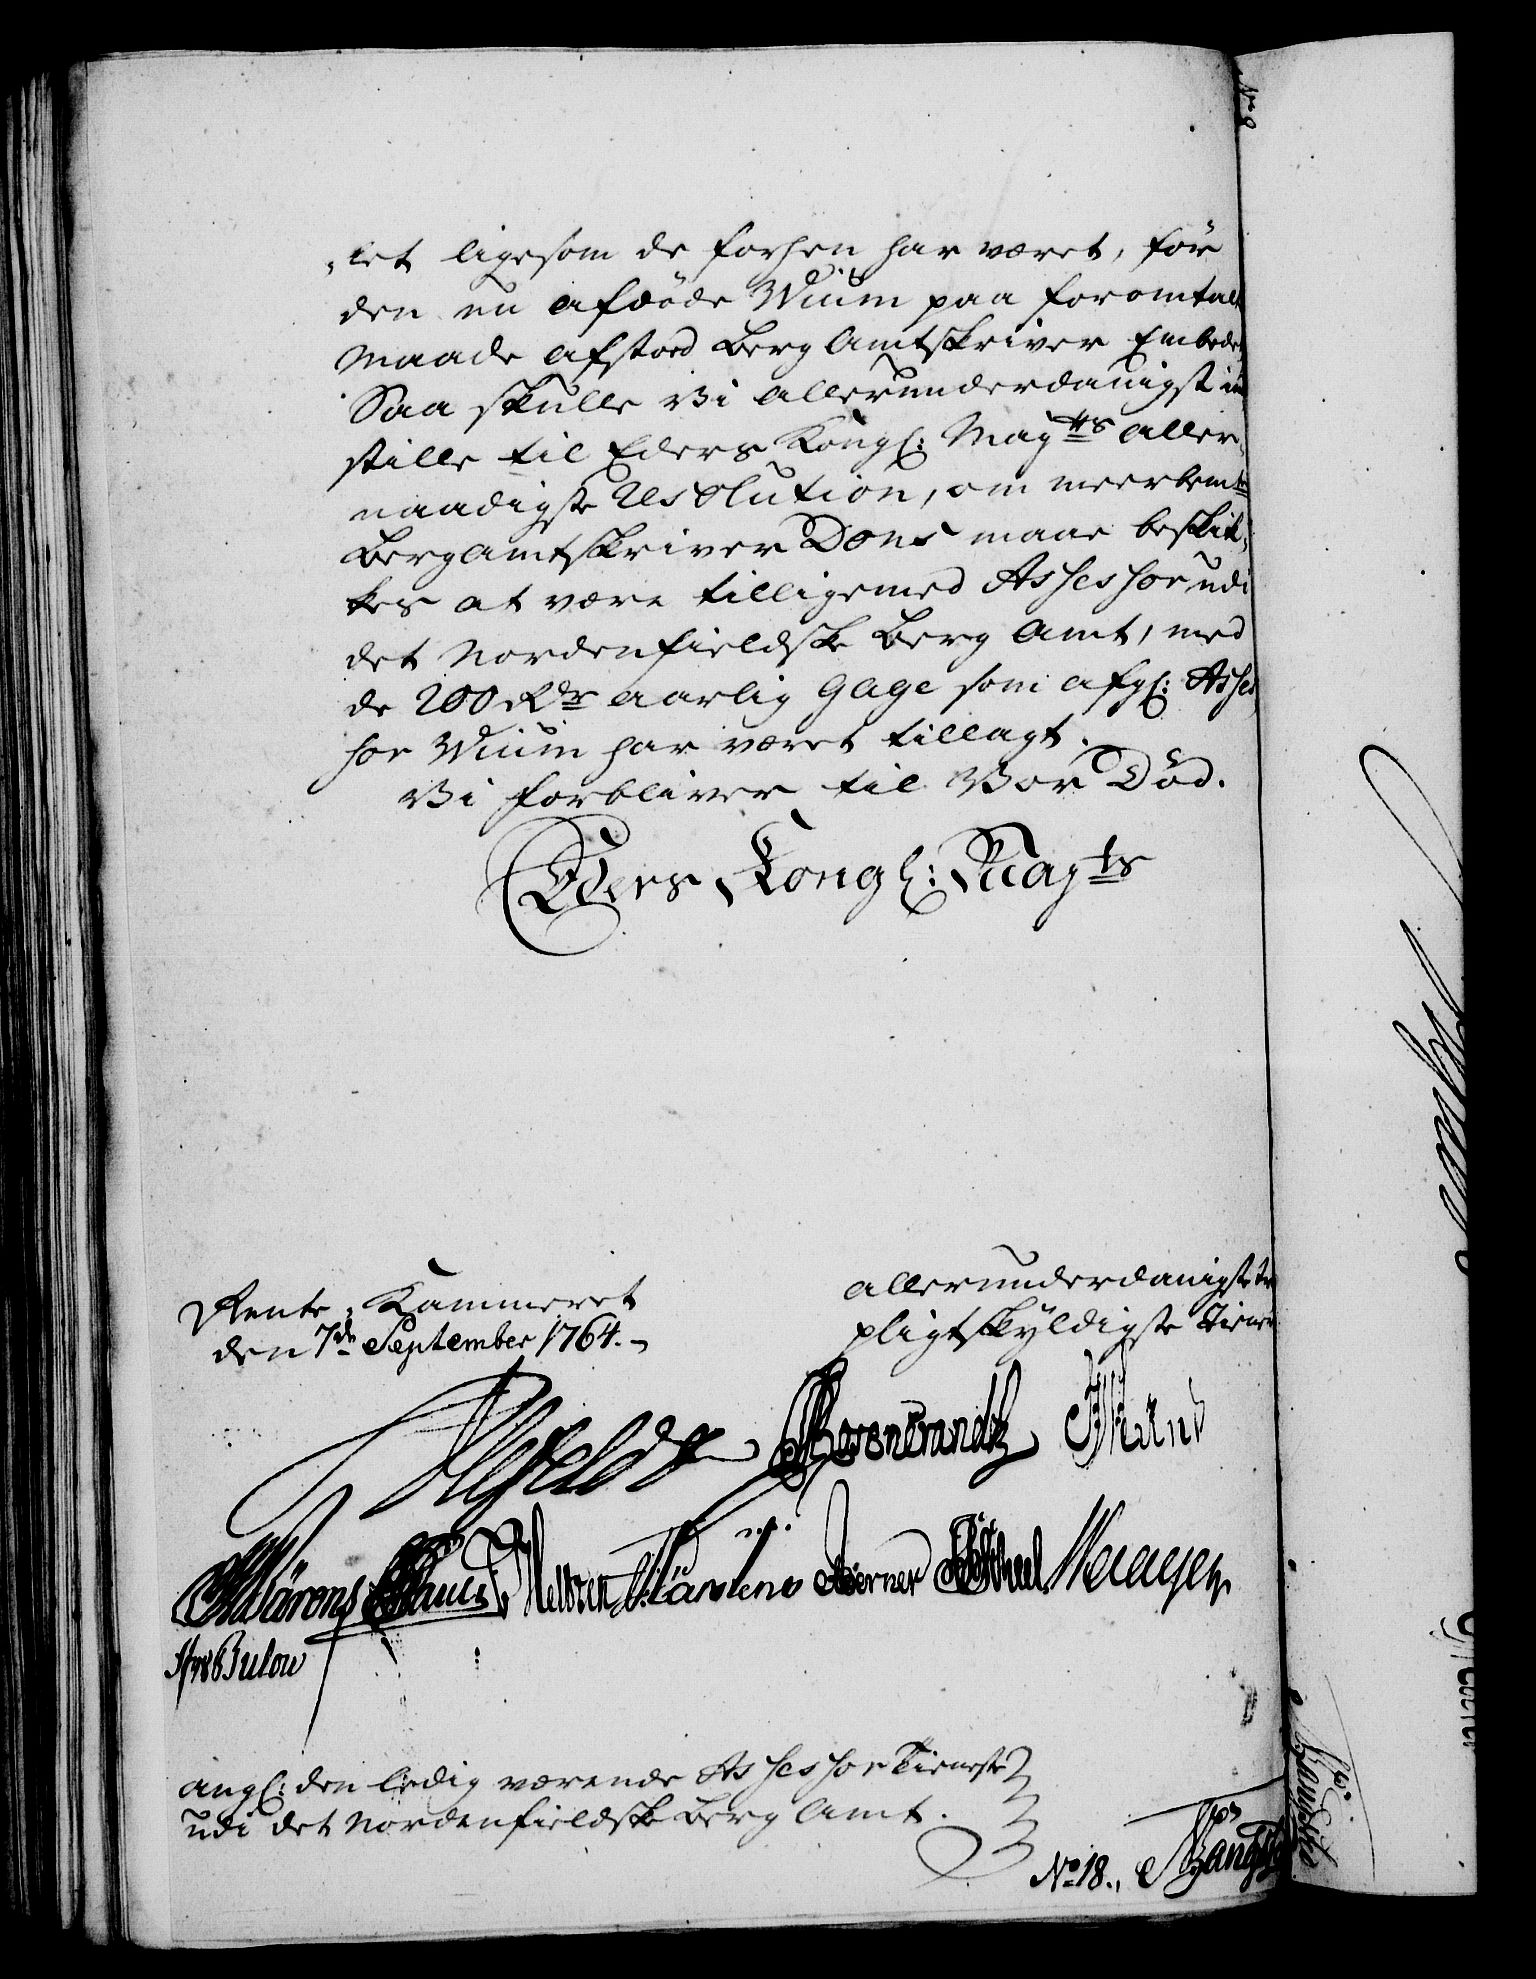 let ligesom de forhen har været, før
den nu afdøde Wium paa foromtalt
Maade afstoed Berg Amtskriver Embedet
Saa skulle Vi allerunderdanigst ind
stille til Eders Kongl: Mayts aller,
naadigste Resolution, om meerbemte
Bergamtskriver Dons maae beskik,
kes at være tilligemed Assessor udi
det Nordenfieldske Berg Amt, med
de 200 Rdr aarlig Gage som afgl: Asses
sor Wium har været tillagt.
Vi forbliver til Vor Død.
Eders Kongl: Mayts
Rente-Kammeret
den 7de September 1764.
allerunderdanigste
pligtskyldigste Tienere
Ahlefeldt
Bulow
angl: den ledig værende Assessor Tieneste
udi det Nordenfieldske Berg Amt.
No 18.